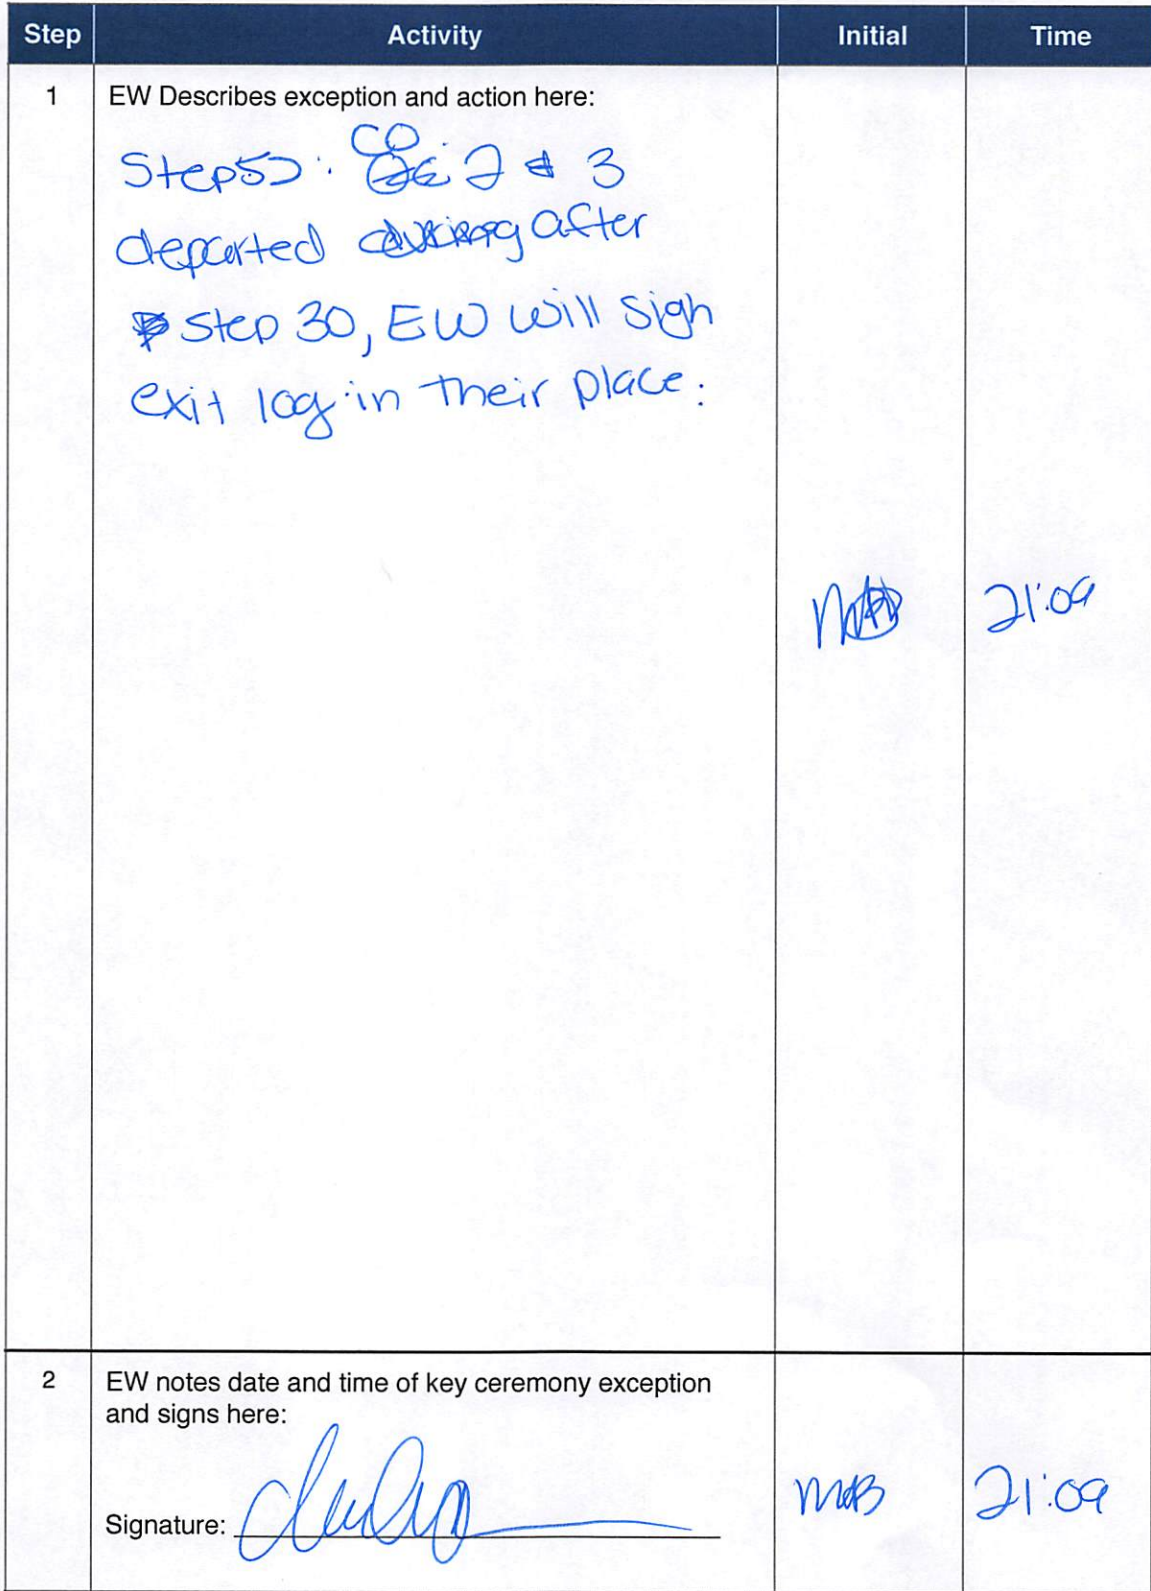 Step Activity Initial Time
1 EW Describes exception and action here:
CO 2 & 3
departed after
Step 30, EW will sign
exit log in their place.
21:09
2 EW notes date and time of key ceremony exception
and signs here:
Signature:
21:09